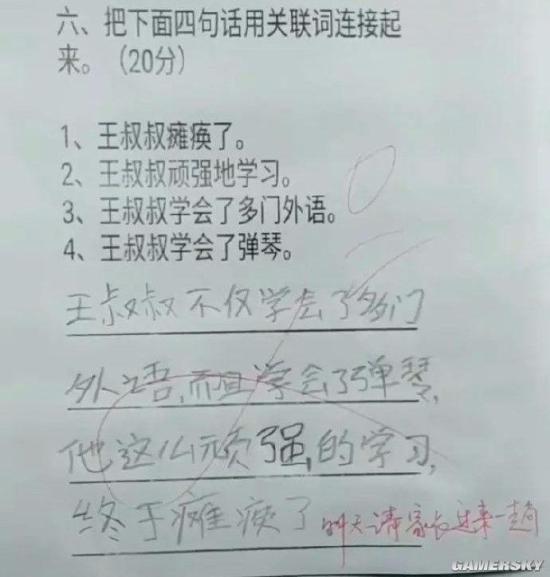 六、把下面四句话用关联词连接起
来。（20分）
1、王叔叔瘫痪了。
2、王叔叔顽强地学习。
3、王叔叔学会了多门外语。
4、王叔叔学会了弹琴。
王叔叔不仅学会了多门
外语,而且学会了弹琴,
他这么顽强的学习,
终于瘫痪了
明天请家长过来一趟
GAMERSKY